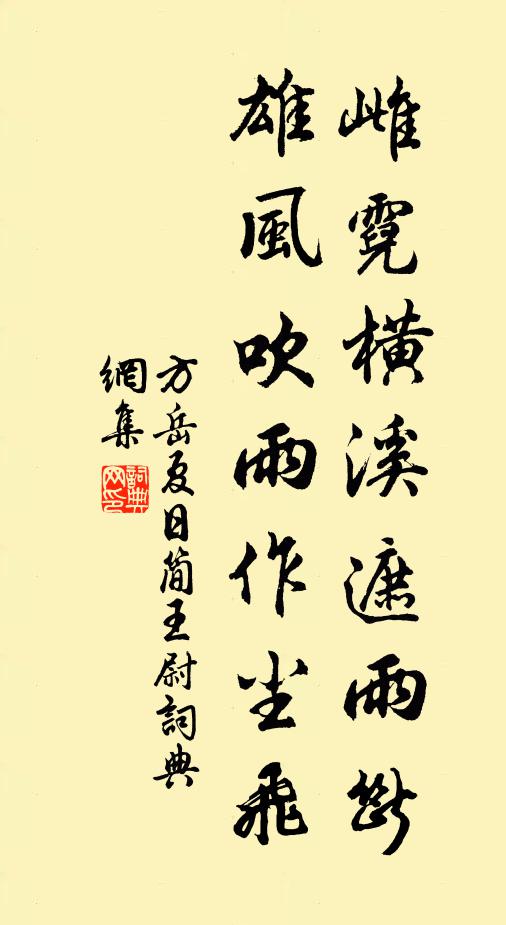 雌霓橫溪遮雨斷
雄風吹雨作尘飛
方岳夏日简王尉詞典
網集
詞典
网印